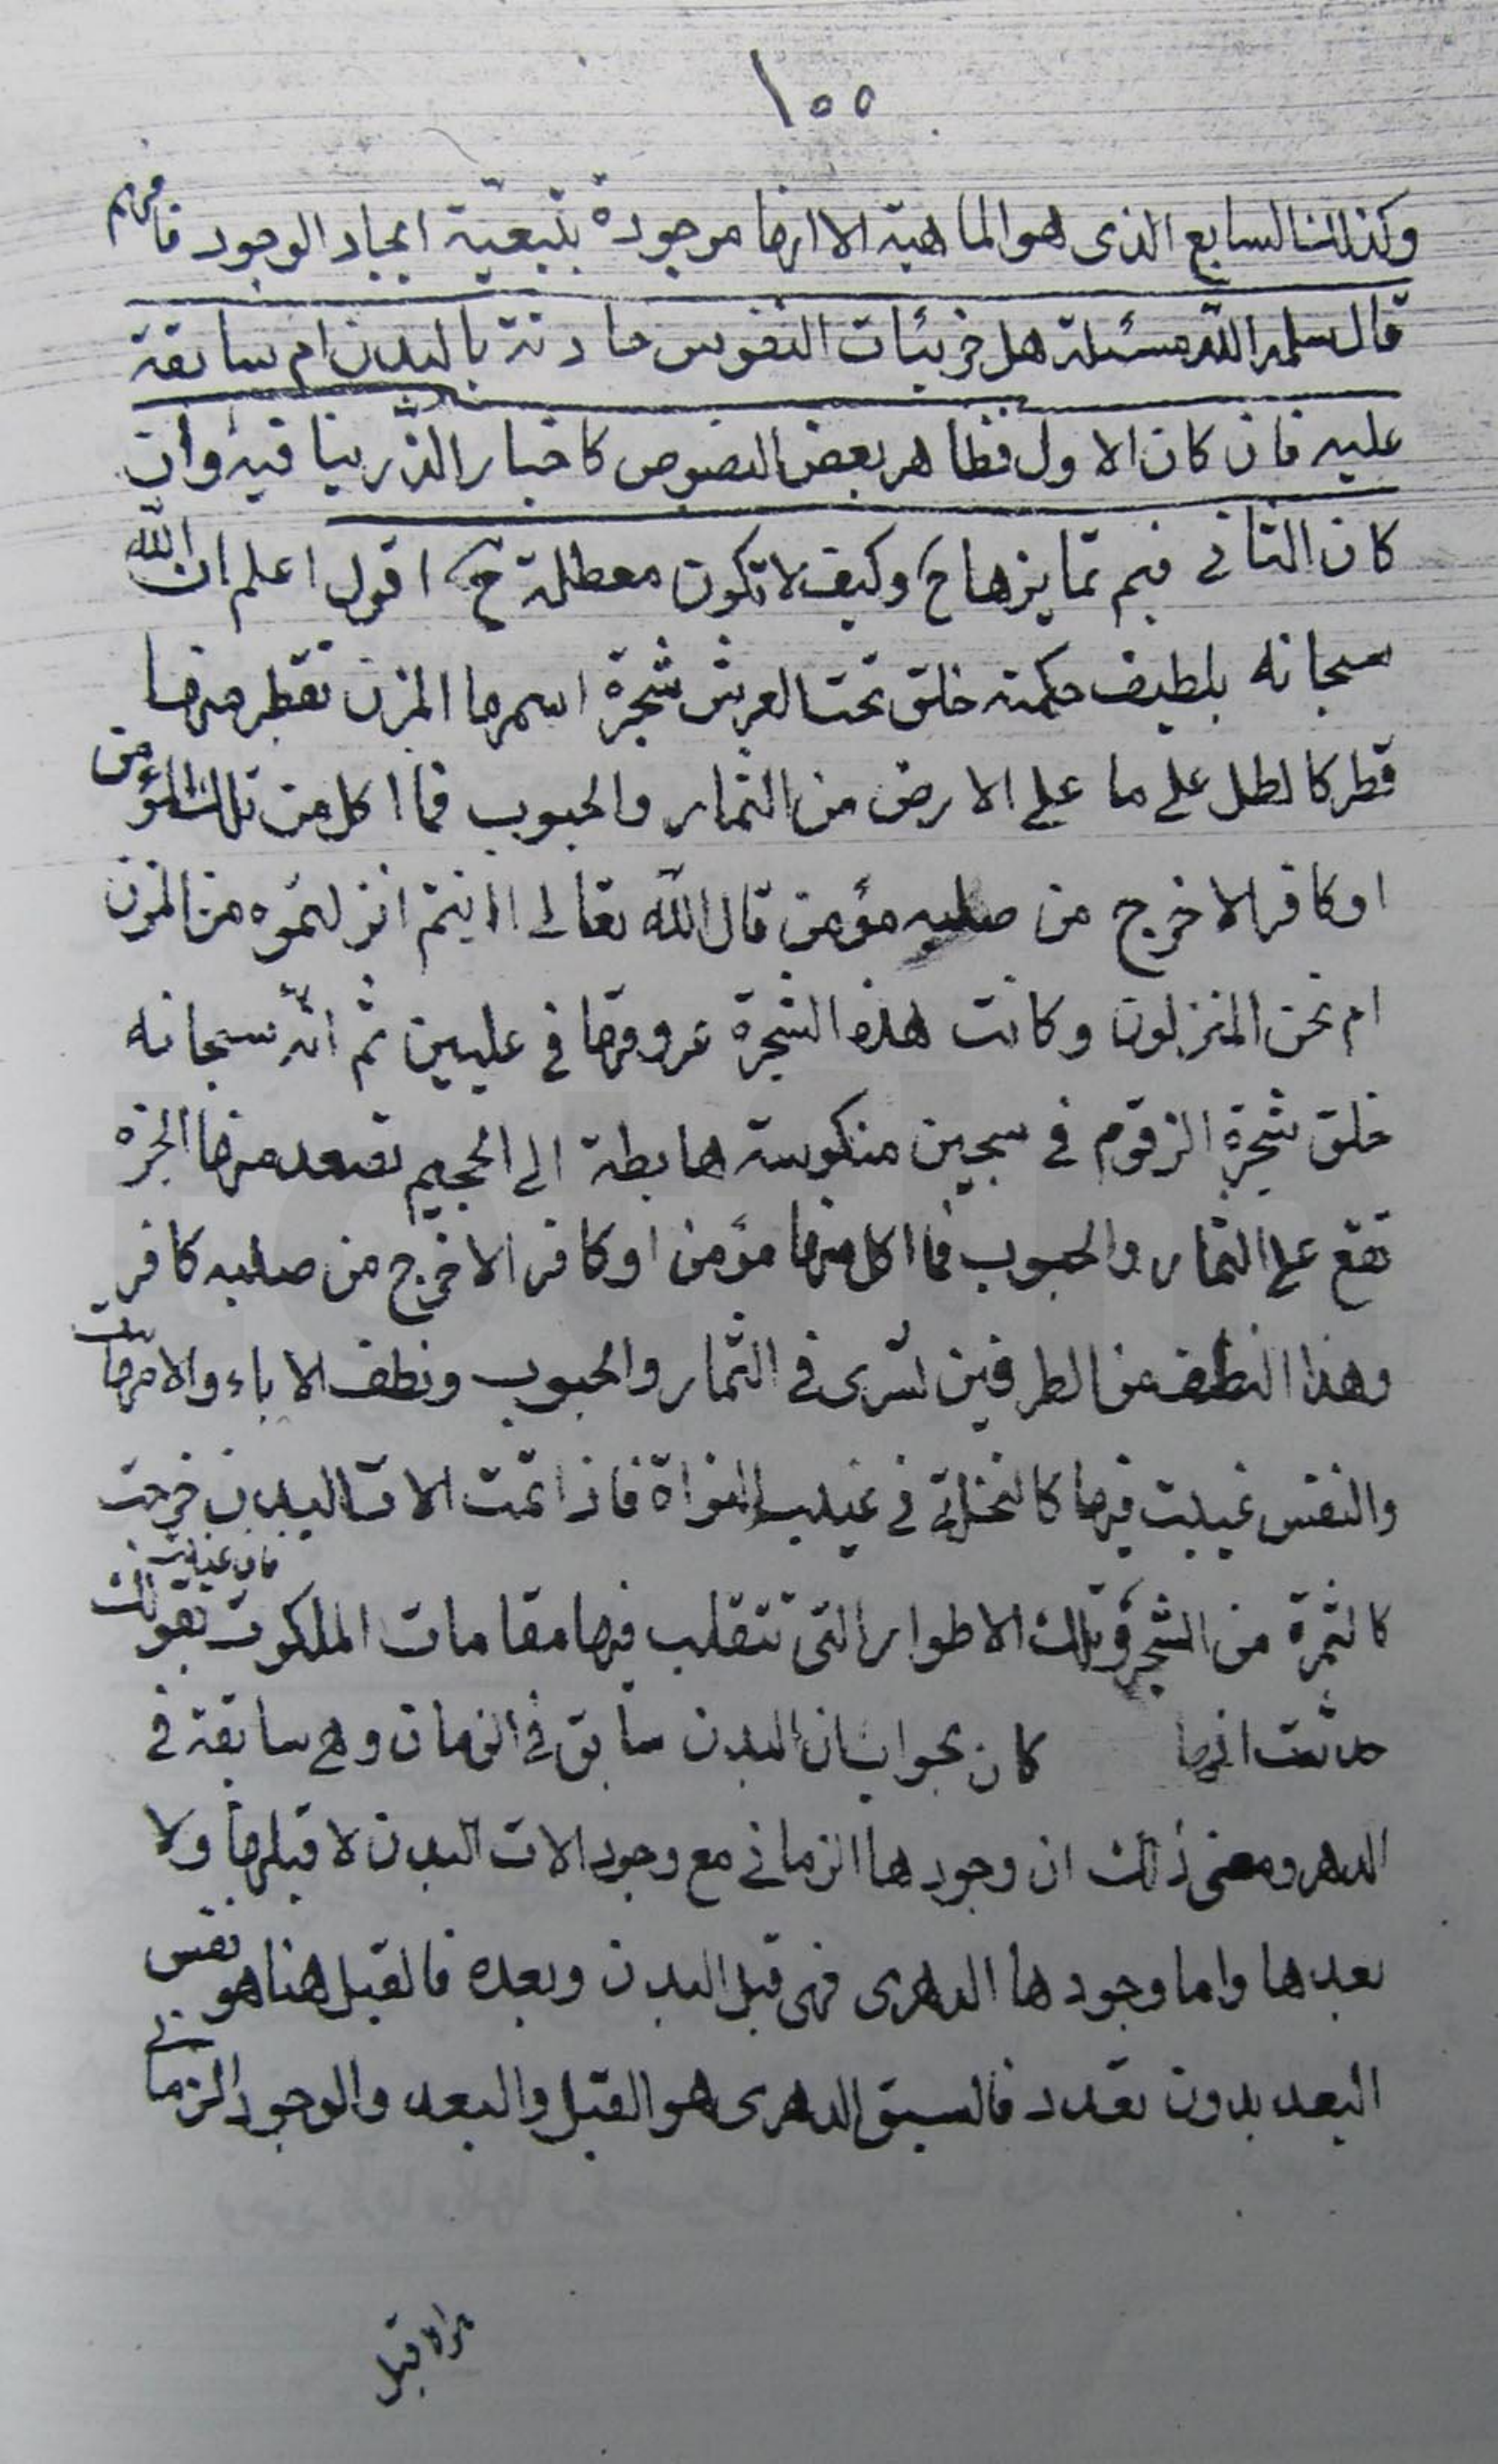 ١٥٥
وكذلك السابع الذى هو الماهية الا انها موجودة بتبعيّة ايجاد الوجود فافهم
قال سلمه الله مسئلة هل جزئيات النفوس حادثة بالبدن ام سابقة
عليه فان كان الاول فظاهر بعض النصوص كاخبار الذّر ينافيه وان
كان الثانى فبم تمايزها ح وكيف لا تكون معطلة ح اقول اعلم ان الله
سبحانه بلطيف حكمته خلق تحت العرش شجرة اسمها المزن تقطر منها
قطر كالطل على ما على الارض من الثمار والحبوب فما اكل من تلك مؤمن
او كافر الا خرج من صلبه مؤمن قال الله تعالى ءانتم انزلتموه من المزن
ام نحن المنزلون وكانت هذه الشجرة عروقها فى عليين ثم انّه سبحانه
خلق شجرة الزقوم فى سجين منكوسة هابطة الى الجحيم تصعد منها ابخرة
تقع على الثمار والحبوب فما اكل منها مؤمن او كافر الا خرج من صلبه كافر
وهذا النطف من الطرفين تسرى فى الثمار والحبوب ونطف الاباء والامهات
والنفس غيبت فيها كالنخلة فى غيب النواة فاذا تمت الات البدن خرجت
كالثمرة من الشجرة وتلك الاطوار التى تتقلب فيها مقامات الملكوت فان عنيت بقولك
حدثت انها كان بجواب ان البدن سابق فى الزمان وهى سابقة فى
الدهر ومعنى ذلك ان وجودها الزمانى مع وجود الات البدن لا قبلها ولا
بعدها واما وجودها الدهرى فهى قبل البدن وبعده فالقبل هنا هو نفس
البعد بدون تعدد فالسبق الدهرى هو القبل والبعد والوجود الزمانى